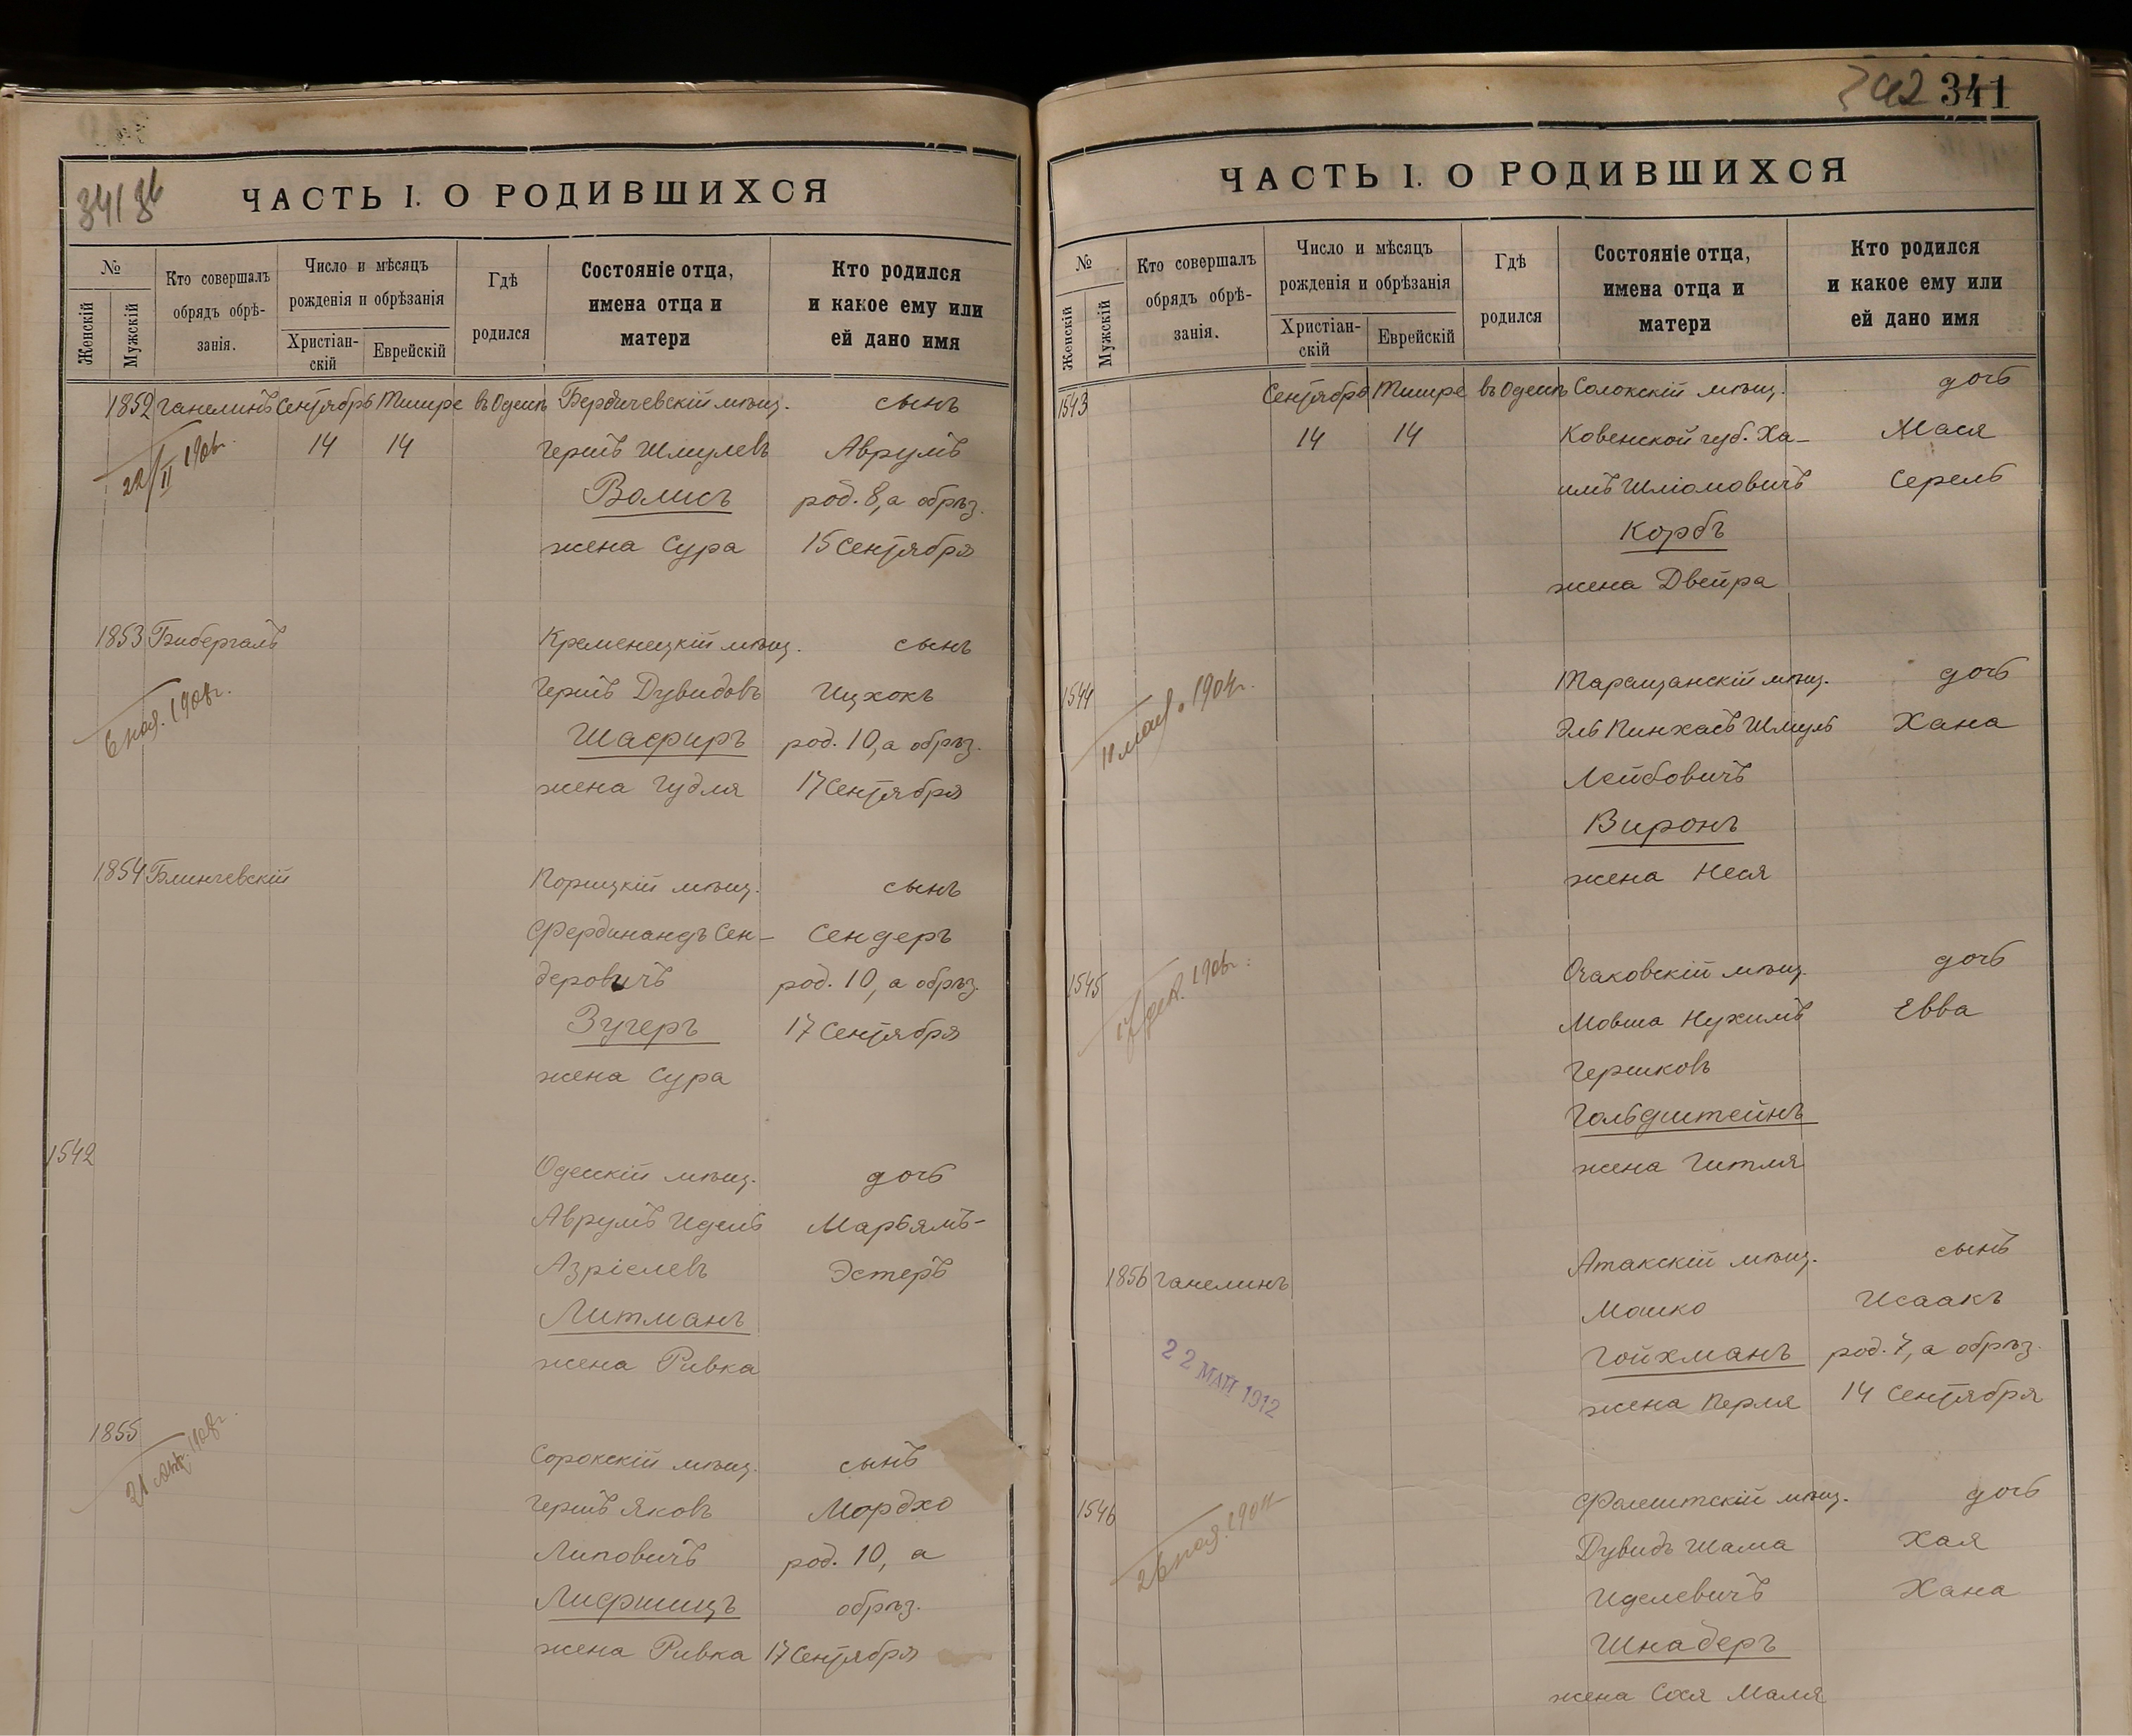 341 об
ЧАСТЬ I. О РОДИВШИХСЯ
№
Женскій
Мужскій
Кто совершалъ
обрядъ обрѣ-
занія.
Число и мѣсяцъ
рожденія и обрѣзанія
Христіан-
скій
Еврейскій
Гдѣ
родился
Состояніе отца,
имена отца и
матери
Кто родился
и какое ему или
ей дано имя
1852 Ганелинъ Сентябрь Тишре въ Одессѣ Бердичевскій мѣщ. сынъ
14 14 Гершъ Шмулевъ Аврумъ
22/II 190
Волисъ род. 8, а обрѣз.
жена Сура 15 Сентября
1853 Бибергалъ Кременецкій мѣщ. сынъ
Гершъ Дувидовъ Ицхокъ
6 ноя. 1908г.
Шафиръ род. 10, а обрѣз.
жена Гудля 17 Сентября
1854 Блинчевскій Порицкій мѣщ. сынъ
Фердинандъ Сен- Сендеръ
деровичъ род. 10, а обрѣз.
Зугеръ 17 Сентября
жена Сура
1542
Одесскій мѣщ. дочь
Аврумъ Идель Марьямъ-
Азріелевъ Эстеръ
Литманъ
жена Ривка
1855
Сорокскій мѣщ. сынъ
Гершъ Яковъ Мордхо
Липовичъ род. 10, а
Лифшицъ обрѣз.
жена Ривка 17 Сентября
342 341
ЧАСТЬ I. О РОДИВШИХСЯ
№
Женскій
Мужскій
Кто совершалъ
обрядъ обрѣ-
занія.
Число и мѣсяцъ
рожденія и обрѣзанія
Христіан-
скій
Еврейскій
Гдѣ
родился
Состояніе отца,
имена отца и
матери
Кто родился
и какое ему или
ей дано имя
1543 Сентябрь Тишре въ Одессѣ Солокскій мѣщ. дочь
14 14 Ковенской губ. Ха- Мася
имъ Шліомовичъ Серель
Корбъ
жена Двейра
1544 Таращанскій мѣщ. дочь
Эль Пинхасъ Шмуль Хана
Лейбовичъ
Виронъ
жена Неся
1545
Очаковскій мѣщ. дочь
Мовша Нухимъ Евва
Гершковъ
Гольдштейнъ
жена Гитля
Атакскій мѣщ. сынъ
1856 Ганелинъ
Мошко Исаакъ
Гойхманъ род. 7, а обрѣз.
22 МАЙ 1912
жена Перля 14 Сентября
1546 Фалештскій мѣщ. дочь
Дувидъ Шама Хая
Иделевичъ Хана
Шнадеръ
жена Сося Маля